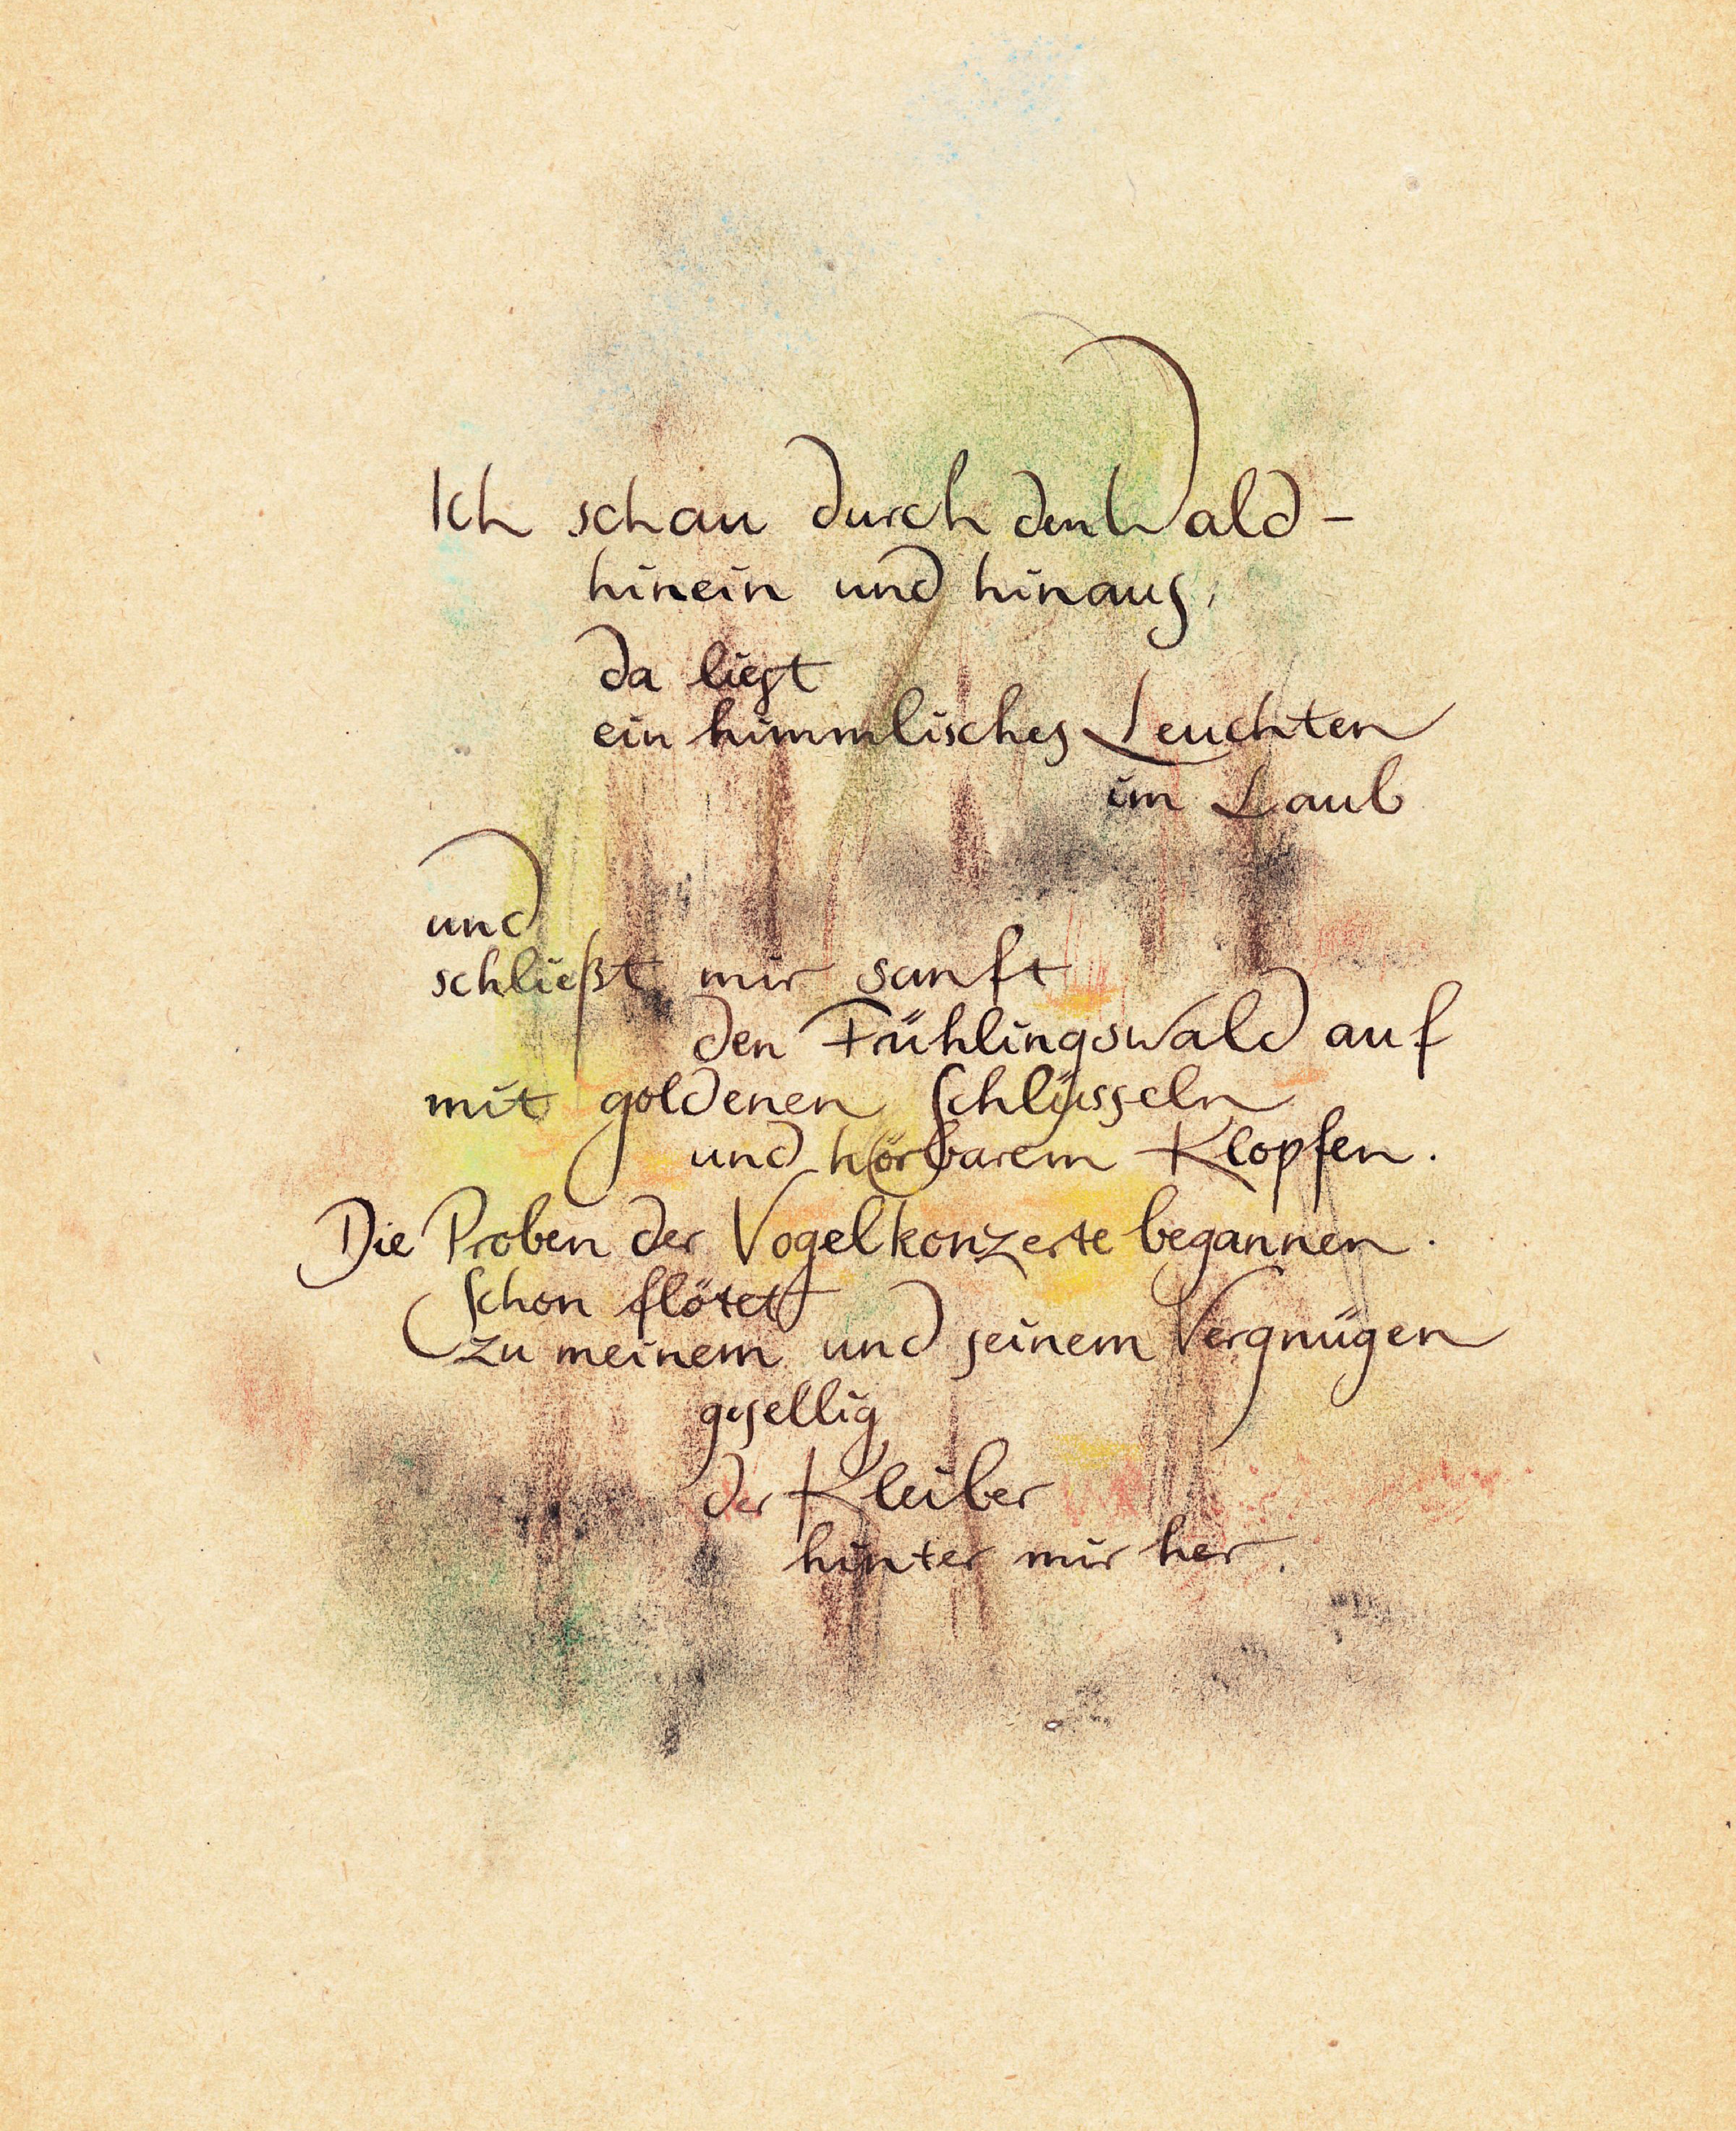 Ich schau durch den Wald –
hinein und hinaus,
da liegt
ein himmlisches Leuchten
im Laub
und
schließt mir sanft
den Frühlingswald auf
mit goldenen Schlüsseln
und hörbarem Klopfen.
Die Proben der Vogelkonzerte begannen.
Schon flötet
zu meinem und seinem Vergnügen
gesellig
der Kleiber
hinter mir her.